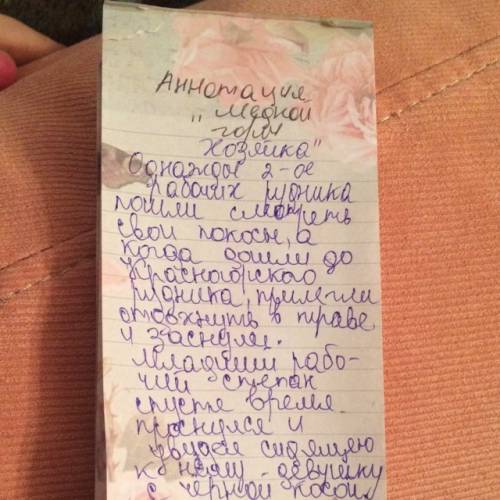 Аннотация
"Медной
горы
Хозяйка"
Однажды 2-ое
рабочих рудника
пошли смотреть
свои покосы, а
когда дошли до
Красногорского
рудника, прилегли
отдохнуть в траве
и заснули.
Младший рабо-
чий Степан
спустя время
проснулся и
увидел сидящею
к нему девушку
с черной косой